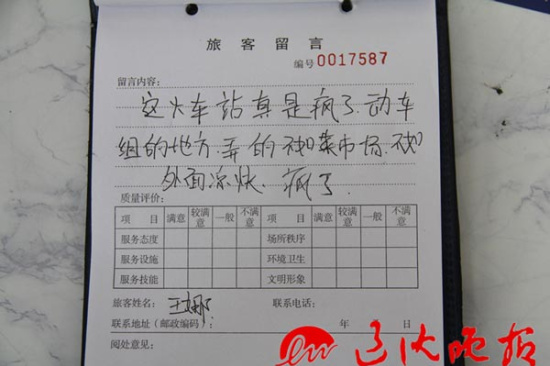 旅客留言
编号0017587
留言内容:
这火车站真是疯了.动车
组的地方.弄的不如菜市场.不如
外面凉快.疯了.
质量评价:
项目 满意 较满意 一般 不满意 项目 满意 较满意 一般 不满意
服务态度 场所秩序
服务设施 环境卫生
服务技能 文明形象
旅客姓名: 王娜 联系电话:
联系地址(邮政编码): 年 月 日
阅处意见:
辽沈晚报